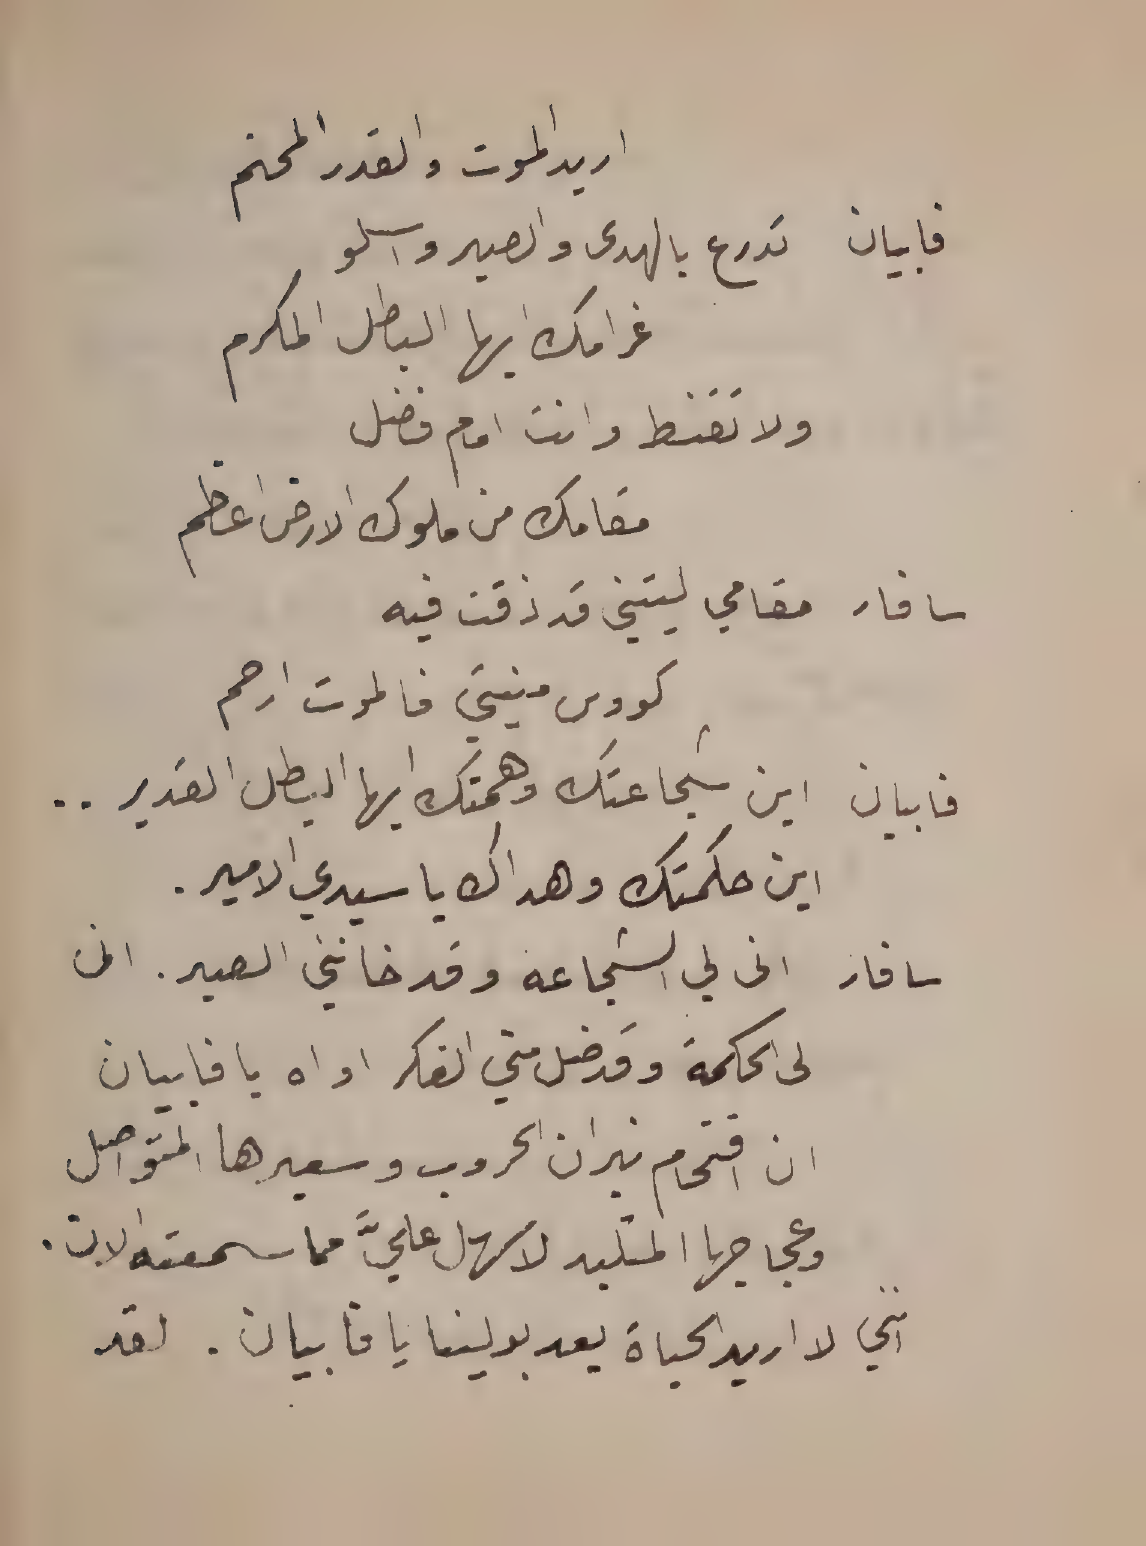 اريد الموت والقدر المحتم
فابيان تدرع بالهدى والصبر واسلو
غرامك ايها البطل المكرم
ولا تقنط وانت امام فضل
مقامك من ملوك الارض اعظم
سافار مقامي ليتني قد ذقت فيه
كووس منيتي فالموت ارحم
فابيان اين شجاعتك وهمتك ايها البطل القدير ..
اين حكمتك وهداك يا سيدي الامير .
سافار انى لي الشجاعه وقد خانني الصبر . انى
لى الحكمة وقد ضل مني الفكر اواه يا فابيان
ان اقتحام نيران الحروب وسعيرها المتواصل
وعجاجها المتلبد لاسهل عليَّ مما سمعته الان .
انني لا اريد الحياة بعد بولينا يا فابيان . لقد